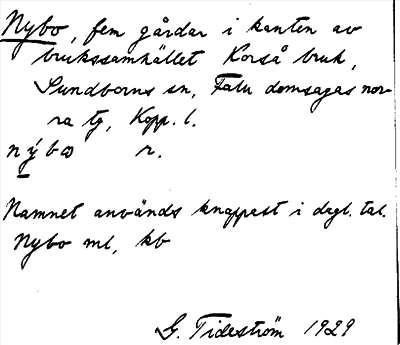 Nybo, fem gårdar i kanten av
brukssamhället Korså bruk,
Sundborns sn, Falu domsagas nor-
ra tg, Kopp. l.
nýbω r.
Namnet används knappast i dagl. tal.
Nybo ml, kb
G. Tideström 1929